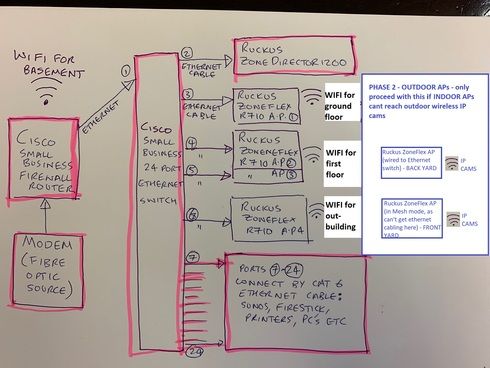 WIFI FOR
BASEMENT
CISCO
SMALL
BUSINESS
FIREWALL
ROUTER
MODEM
(FIBRE
OPTIC
SOURCE)
ETHERNET
①
CISCO
SMALL
BUSINESS
24 PORT
ETHERNET
SWITCH
②
ETHERNET
CABLE
RUCKUS
ZONE DIRECTOR 1200
③
ETHERNET
CABLE
RUCKUS
ZONEFLEX
R710 A.P. ①
WIFI for
ground
floor
④
"
⑤
"
RUCKUS
ZONENEFLEX
R710 A.P ②
AP ③
WIFI for
first
floor
"
RUCKUS
ZONEFLEX
R710 A.P 4
WIFI for
out-
building
⑦
㉔
PORTS ⑦-㉔
CONNECT BY CAT 6
ETHERNET CABLE:
SONOS, FIRESTICK,
PRINTERS, PC'S ETC
PHASE 2 - OUTDOOR APs - only
proceed with this if INDOOR APs
cant reach outdoor wireless IP
cams
Ruckus ZoneFlex AP
(wired to Ethernet
switch) - BACK YARD
IP
CAMS
Ruckus ZoneFlex AP
(in Mesh mode, as
can't get ethernet
cabling here) - FRONT
YARD
IP
CAMS